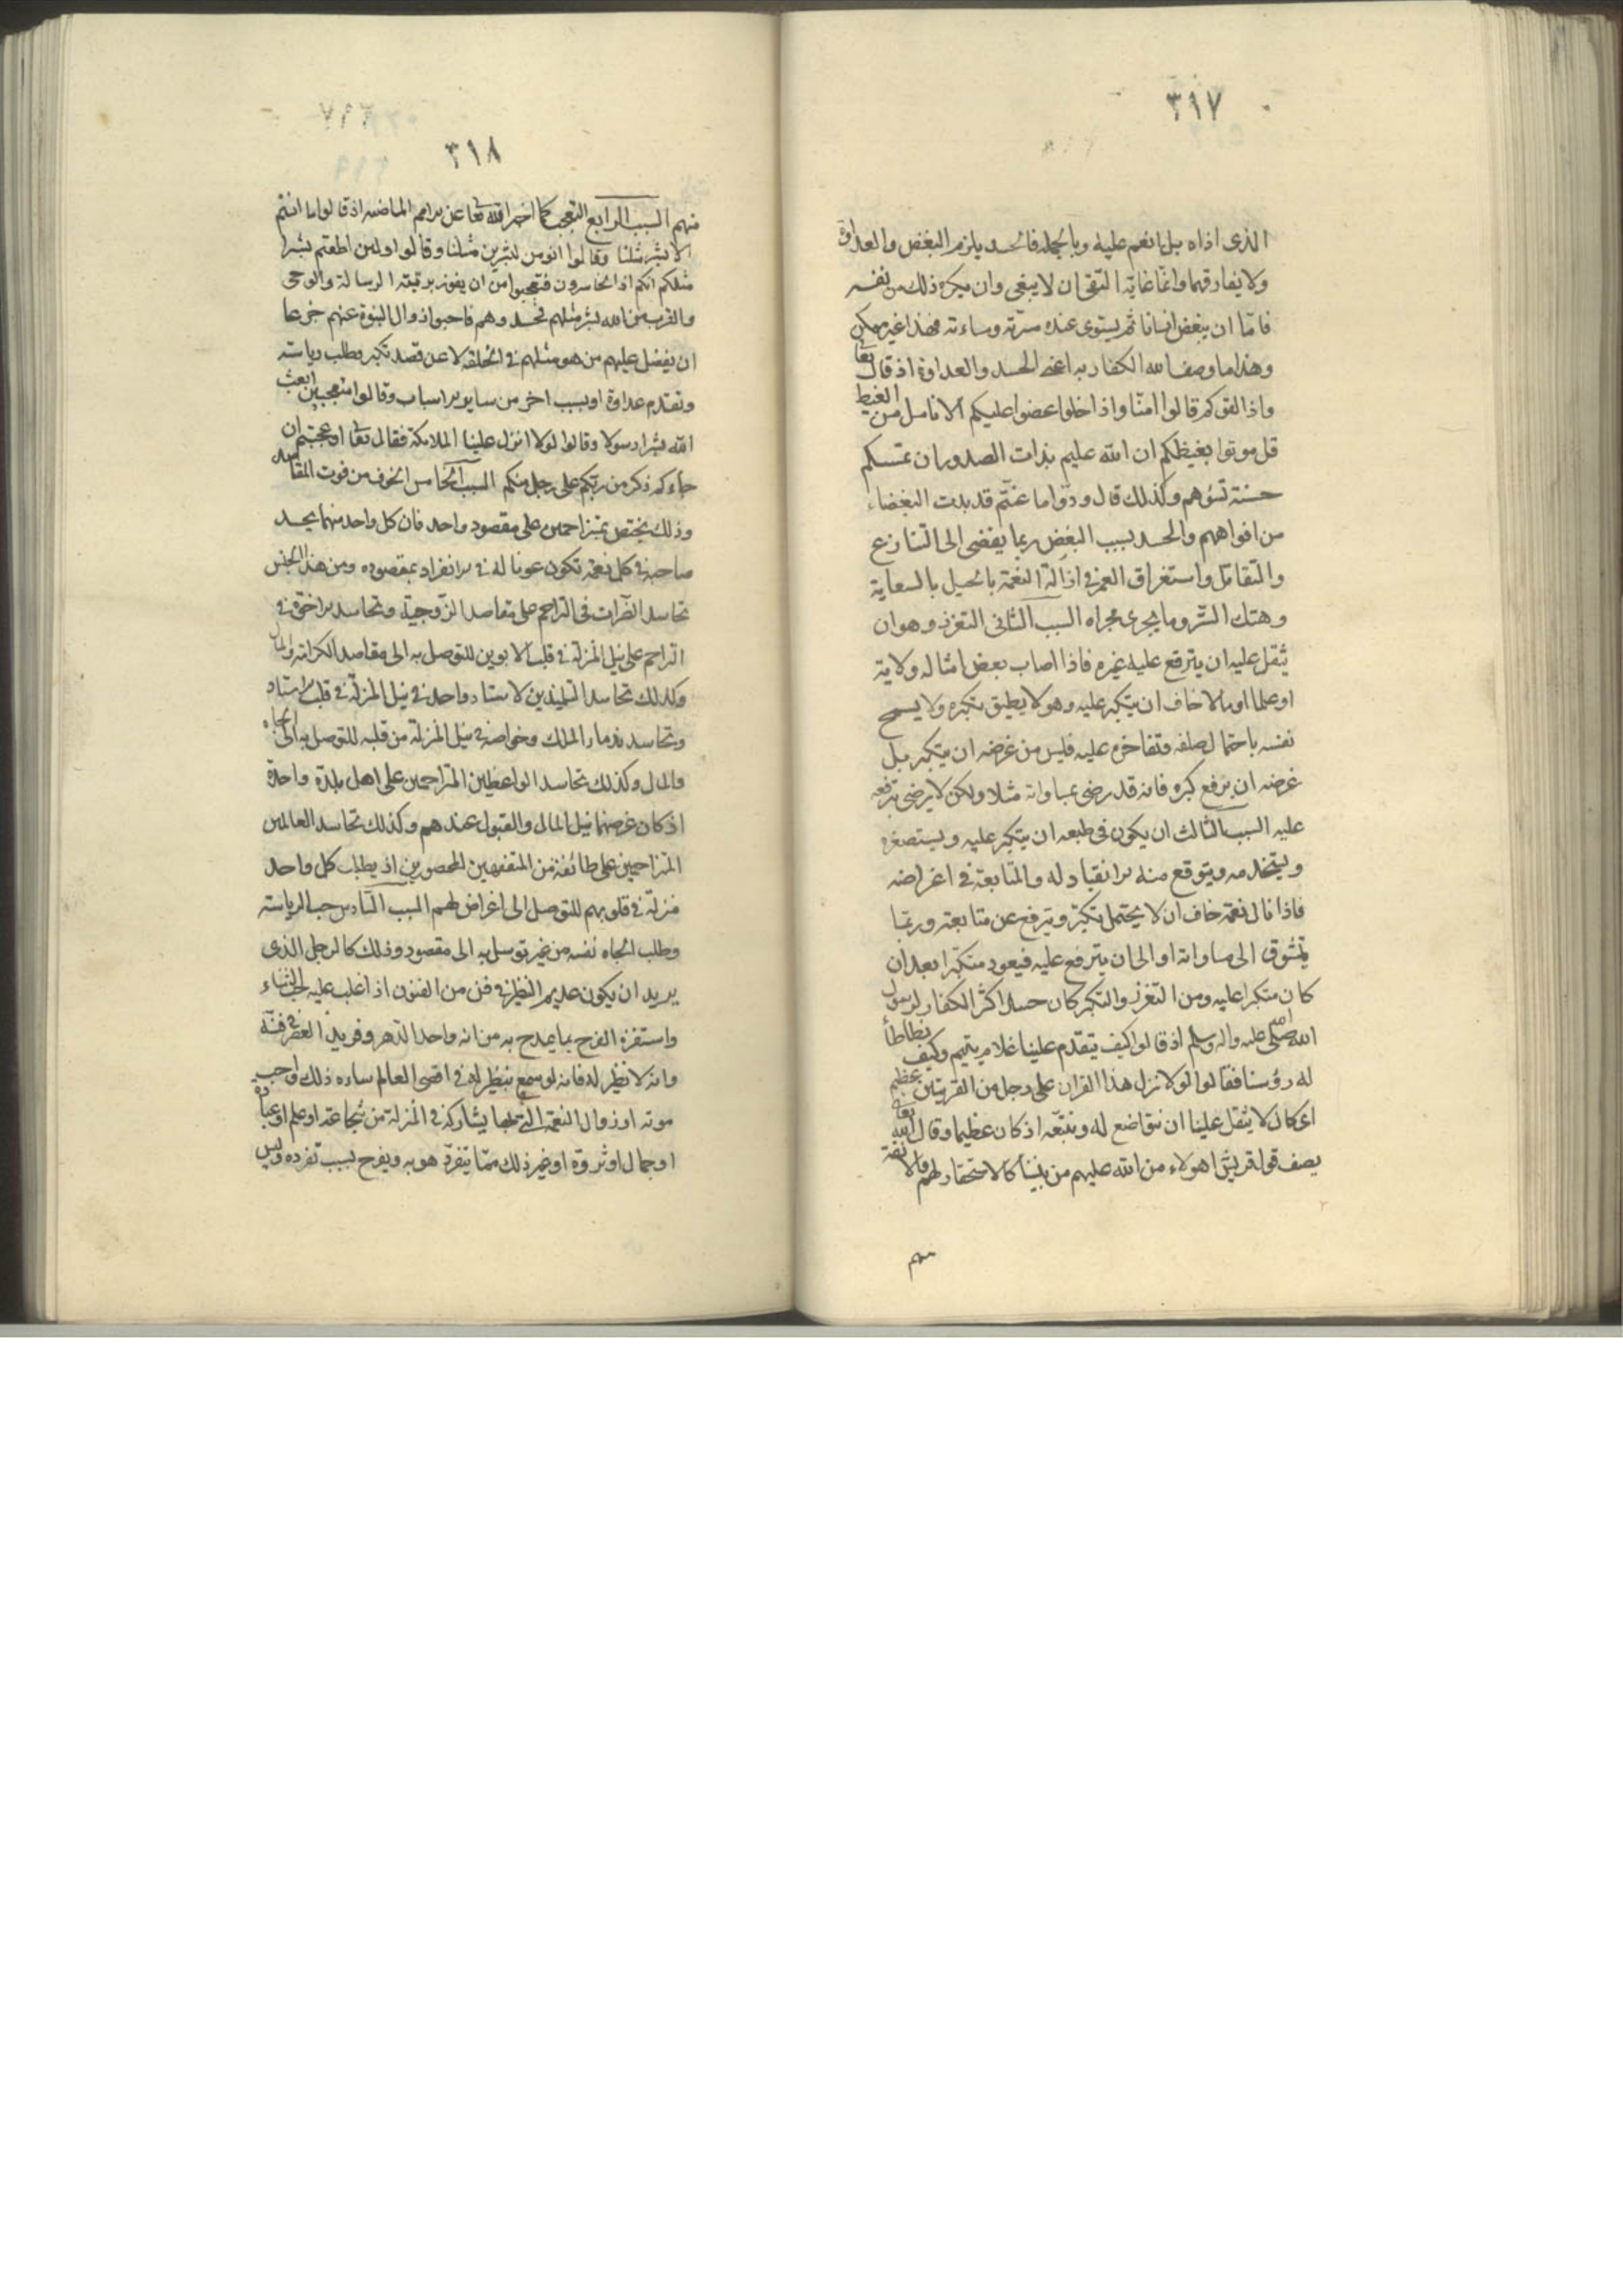 ٣١٧
الذى اذاه بل انعم عليه وبالجمله فالحسد يلزم البغض والعداوة
ولا يفارقهما وانما غاية التقى ان لا يبغى وان يكره ذلك من نفسه
فامّا ان يبغض انسانا ثم يستوى عنده مسرّته ومساءته فهذا غير ممكن
وهذا ما وصف الله الكفار به اعنى الحسد والعداوة اذ قال تعا
واذا لقوكم قالوا امنّا واذا خلوا عضوا عليكم الانامل من الغيظ
قل موتوا بغيظكم ان الله عليم بذات الصدور ان تمسسكم
حسنة تسؤهم وكذلك قال ودّوا ما عنتّم قد بدت البغضاء
من افواههم والحسد بسبب البغض ربما يفضى الى التنازع
والتقاتل واستغراق العمر فى ازالة النعمة بالحيل بالسعاية
وهتك الستر وما يجرى مجراه السبب الثانى التعزز وهو ان
يثقل عليه ان يترفع عليه غيره فاذا اصاب بعض امثاله ولاية
او علما او مالا خاف ان يتكبر عليه وهو لا يطيق تكبره ولا يسمح
نفسه باحتمال صلفه وتفاخره عليه فليس من غرضه ان يتكبر بل
غرضه ان يرفع كبره فانه قد رضى بمساواته مثلا ولكن لا يرضى بترفعه
عليه السبب الثالث ان يكون فى طبعه ان يتكبر عليه ويستصغره
ويستخدمه ويتوقع منه الانقياد له والمتابعة فى اغراضه
فاذا نال نعمة خاف ان لا يحتمل تكبره ويترفع عن متابعته وربما
يتشوق الى مساواته او الى ان يترفع عليه فيعود متكبرا بعد ان
كان متكبرا عليه ومن التعزز والتكبر كان حسد اكثر الكفار لرسول
الله صلى الله عليه واله وسلم اذ قالوا كيف يتقدم علينا غلام يتيم وكيف نطاطأ
له رؤسنا فقالوا لولا نزل هذا القران على رجل من القريتين عظيم
اى كان لا يثقل علينا ان نتواضع له ونتبعه اذ كان عظيما وقال الله تعا
يصف قول قريش اهولاء من الله عليهم من بيننا كالاستحقار لهم والانفة
منهم
٣١٨
منهم السبب الرابع التعجب كما اخبر الله تعا عن الامم الماضيه اذ قالوا ما انتم
الا بشر مثلنا وقالوا انومن لبشرين مثلنا وقالوا ولئن اطعتم بشرا
مثلكم انكم اذا لخاسرون فتعجبوا من ان يفوز برتبة الرسالة والوحى
والقرب من الله بشر مثلهم فحسدوهم فاحبوا زوال النبوة عنهم جزعا
ان يفضل عليهم من هو مثلهم فى الخلقه لا عن قصد تكبر وطلب رياسته
وتقدم عداوة او بسبب اخر من ساير الاسباب وقالوا متعجبين ابعث
الله بشرا رسولا وقالوا لولا انزل علينا الملائكة فقال تعا اوعجبتم ان
جاءكم ذكر من ربكم على رجل منكم السبب الخامس الخوف من فوت المقاصد
وذلك يختص بمتزاحمين على مقصود واحد فان كل واحد منهما يحسد
صاحبه فى كل نعمة تكون عونا له فى الانفراد بمقصوده ومن هذا الجنس
تحاسد الضرات فى التزاحم على مقاصد الزوجية وتحاسد الاخوة فى
التزاحم على نيل المنزلة فى قلب الابوين للتوصل به الى مقاصد الكرامة والمال
وكذلك تحاسد التلميذين لاستاد واحد فى نيل المنزلة فى قلب الاستاد
وتحاسد ندماء الملك وخواصه فى نيل المنزلة من قلبه للتوصل به الى الجاه
والمال وكذلك تحاسد الواعظين المتزاحمين على اهل بلدة واحدة
اذ كان غرضهما نيل المال والقبول عندهم وكذلك تحاسد العالمين
المتزاحمين على طائفة من المتفقهين المحصورين اذ يطلب كل واحد
منزلة فى قلوبهم للتوصل الى اغراض لهم السبب السادس حب الرياسته
وطلب الجاه نفسه من غير توسل به الى مقصود وذلك كالرجل الذى
يريد ان يكون عديم النظير فى فن من الفنون اذا غلب عليه حب الثناء
واستفزه الفرح بما يمدح به من انه واحد الدهر وفريد العصر فى فنه
وانه لا نظير له فانه لو سمع بنظير له فى اقصى العالم ساءه ذلك واحب
موته او زوال النعمة التى بها يشاركه فى المنزلة من شجاعة او علم او عبادة
او جمال او ثروة او غير ذلك مما يتفرد هو به ويفرح بسبب تفرده وليس